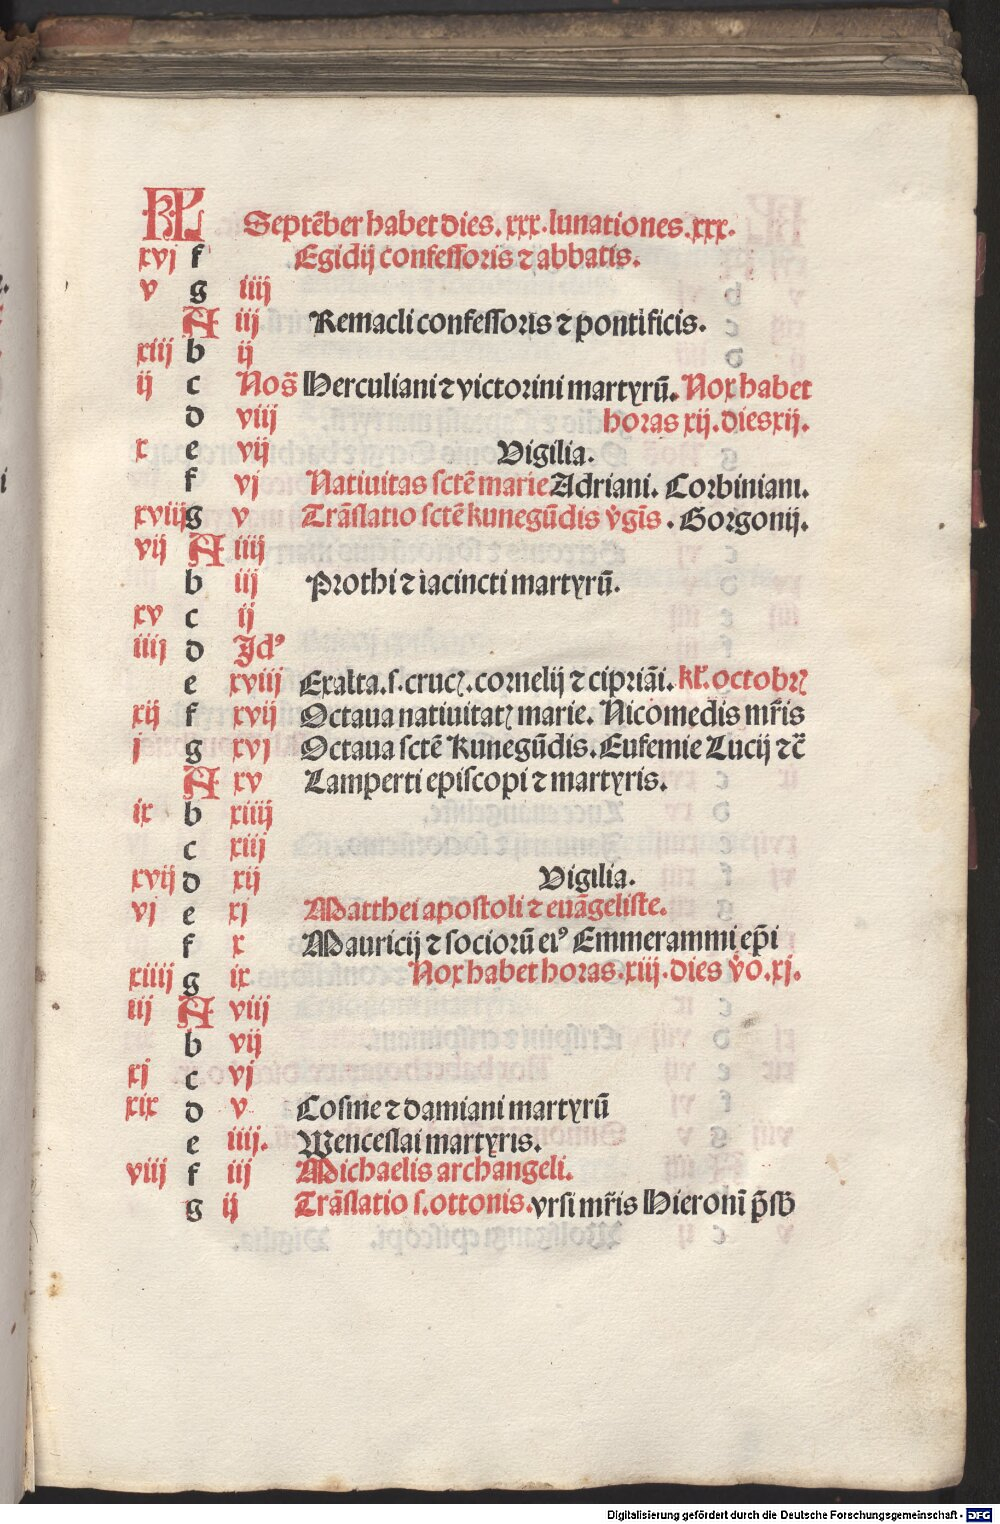 KL Septēber habet dies. xxx. lunationes. xxx.
xvj f Egidij confessoris ⁊ abbatis.
v g iiij
A iij Remacli confessoris ⁊ pontificis.
xiij b ij
ij c Nos̄ Herculiani ⁊ victorini martyrū. Nox habet
d viij horas xij. dies xij.
x e vij Vigilia.
f vj Natiuitas sctē marie Adriani. Corbiniani.
xviij g v Trāslatio sctē kunegūdis v̄gīs. Gorgonij.
vij A iiij
b iij Prothi ⁊ iacincti martyrū.
xv c ij
iiij d Jdꝰ
e xviij Exalta. s. crucꝭ. cornelij ⁊ cipriāi. kl'. octobrꝭ
xij f xvij Octaua natiuitatꝭ marie. Nicomedis mr̄is
j g xvj Octaua sctē Kunegūdis. Eufemie Lucij ⁊c̄
A xv Lamperti episcopi ⁊ martyris.
ix b xiiij
c xiij
xvij d xij Vigilia.
vj e xj Matthei apostoli ⁊ euāgeliste.
f x Mauricij ⁊ sociorū eiꝰ Emmerammi ep̄i
xiiij g ix Nox habet horas. xiij. dies v̄o. xj.
iij A viij
b vij
xj c vj
xix d v Cosme ⁊ damiani martyrū
e iiij. Wenceslai martyris.
viij f iij Michaelis archangeli.
g ij Trāslatio s. ottonis. vrsi mr̄is Hieronī p̄sb
Digitalisierung gefördert durch die Deutsche Forschungsgemeinschaft - DFG